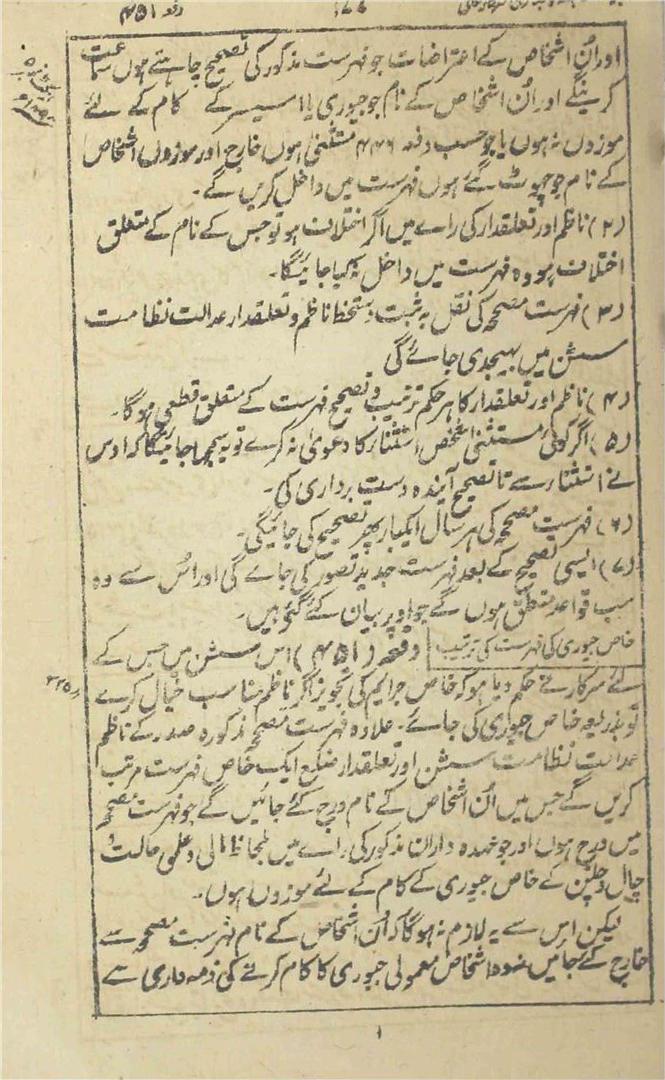 دفعہ ۴۵۱
۱۷۷
اور اُن اشخاص کے اعتراضات جو فہرست مذکور کی تصحیح چاہتے ہوں سماعت
کرینگے اور اُن اشخاص کے نام جو جیوری یا اسیسر کے کام کے لئے
موزوں نہ ہوں یا جو حسب دفعہ ۴۴۶ مستثنیٰ ہوں خارج اور موزوں اشخاص
کے نام جو چھوٹ گئے ہوں فہرست میں داخل کریں گے۔
(۲) ناظم اور تعلقدار کی رائے میں اگر اختلاف ہو تو جس کے نام کے متعلق
اختلاف ہو وہ فہرست میں داخل نہ کیا جائیگا۔
(۳) فہرست مصححہ کی نقل بہ ثبت دستخط ناظم و تعلقدار عدالت نظامت
سشن میں بھیجدی جائے گی
(۴) ناظم اور تعلقدار کا ہر حکم ترتیب و تصحیح فہرست کے متعلق قطعی ہوگا۔
(۵) اگر کوئی مستثنیٰ شخص استثناء کا دعویٰ نہ کرے تو یہ سمجھا جائیگا کہ اوس
نے استثناء سے تا تصحیح آیندہ دست برداری کی۔
(۶) فہرست مصححہ کی ہر سال ایکبار پھر تصحیح کی جائیگی۔
(۷) ایسی تصحیح کے بعد فہرست جدید تصور کی جاے گی اور اُس سے وہ
سب قواعد متعلق ہوں گے جو اوپر بیان کئے گئے ہیں۔
خاص جیوری کی فہرست کی ترتیب دفعہ (۴۵۱) اس سشن میں جس کے
لئے سرکار نے حکم دیا ہو کہ خاص جرایم کی تجویز اگر ناظم مناسب خیال کرے
تو بذریعہ خاص جیوری کی جائے۔ علاوہ فہرست مصححہ مذکورہ صدر کے ناظم
عدالت نظامت سشن اور تعلقدار ضلع ایک خاص فہرست مرتب
کریں گے جس میں اُن اشخاص کے نام درج کئے جائیں گے جو فہرست مصححہ
میں درج ہوں اور جو عہدہ داران مذکور کی رائے میں بلحاظ مالی و علمی حالت و
چال و چلن کے خاص جیوری کے کام کے لئے موزوں ہوں۔
لیکن اس سے یہ لازم نہ ہوگا کہ اُن اشخاص کے نام فہرست مصححہ سے
خارج کئے جائیں نہ وہ اشخاص معمولی جیوری کا کام کرنے کی ذمہ داری سے